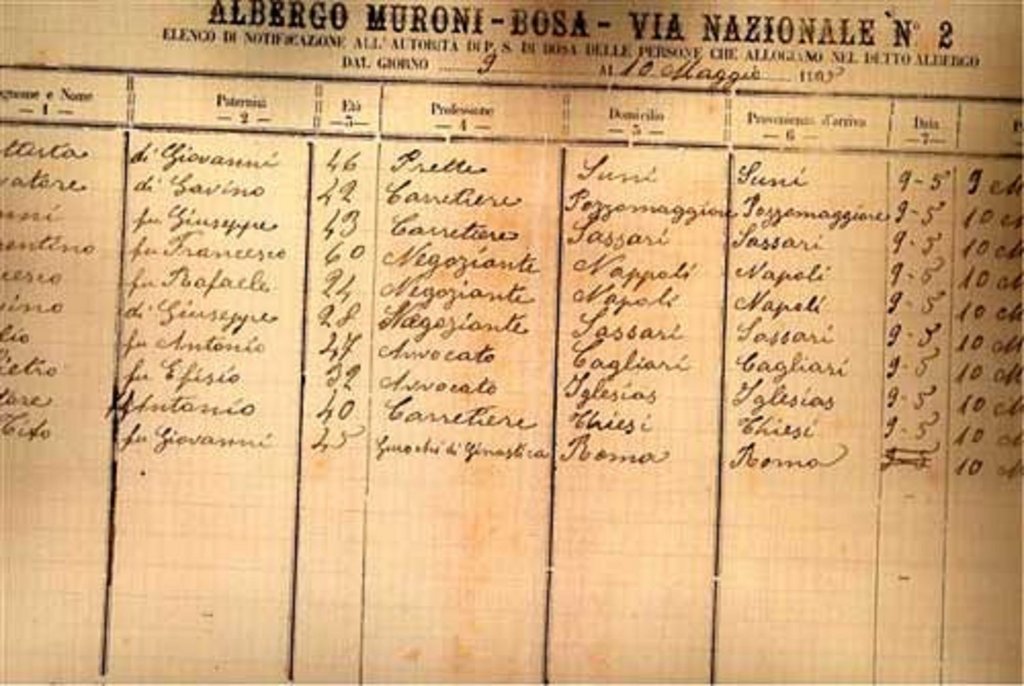 ALBERGO MURONI - BOSA - VIA NAZIONALE N° 2
ELENCO DI NOTIFICAZIONE ALL'AUTORITÀ DI P. S. DI BOSA DELLE PERSONE CHE ALLOGIANO NEL DETTO ALBERGO
DAL GIORNO 9 AL 10 Maggio
gnome e Nome Paternità Età Professione Domicilio Provenienza d'arrivo Data
- 1 - - 2 - - 3 - - 4 - - 5 - - 6 - - 7 -
ttista di Giovanni 46 Prette Suni Suni 9-5 9 M
vatore di Gavino 42 Carretiere Pozzomaggiore Pozzomaggiore 9-5 10 M
nni fu Giuseppe 43 Carretiere Sassari Sassari 9-5 10 M
rentino fu Francesco 60 Negoziante Nappoli Napoli 9-5 10 M
cesco fu Rafaelle 24 Negoziante Napoli Napoli 9-5 10 M
ino di Giuseppe 28 Negoziante Sassari Sassari 9-5 10 M
lio fu Antonio 47 Avvocato Cagliari Cagliari 9-5 10 M
Pietro fu Efisio 32 Avvocato Iglesias Iglesias 9-5 10 M
Antonio 40 Carretiere Thiesi Thiesi 9-5 10 M
Tito fu Giovanni 45 Guochi di Ginastica Roma Roma 10 M